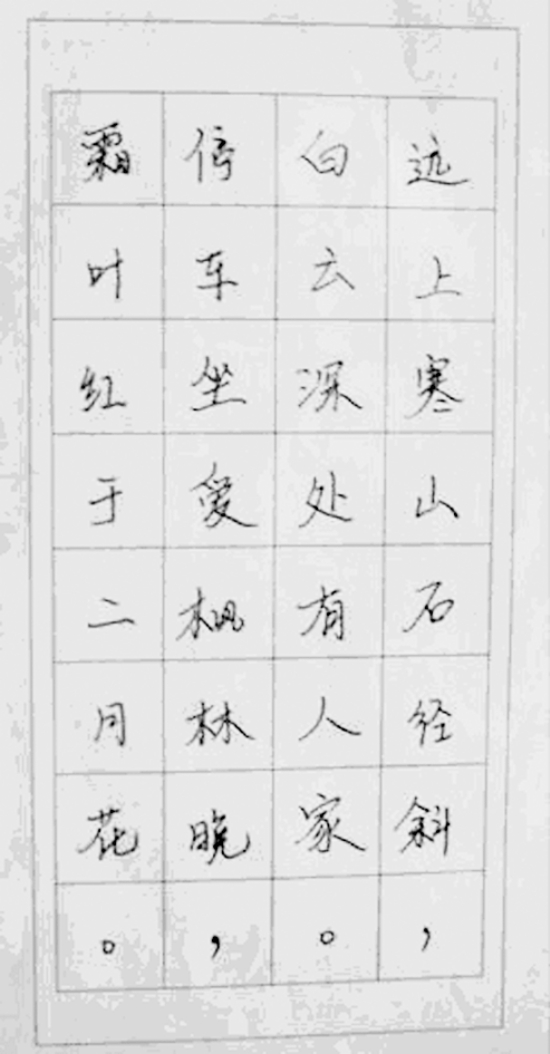 远上寒山石经斜，
白云深处有人家。
停车坐爱枫林晚，
霜叶红于二月花。